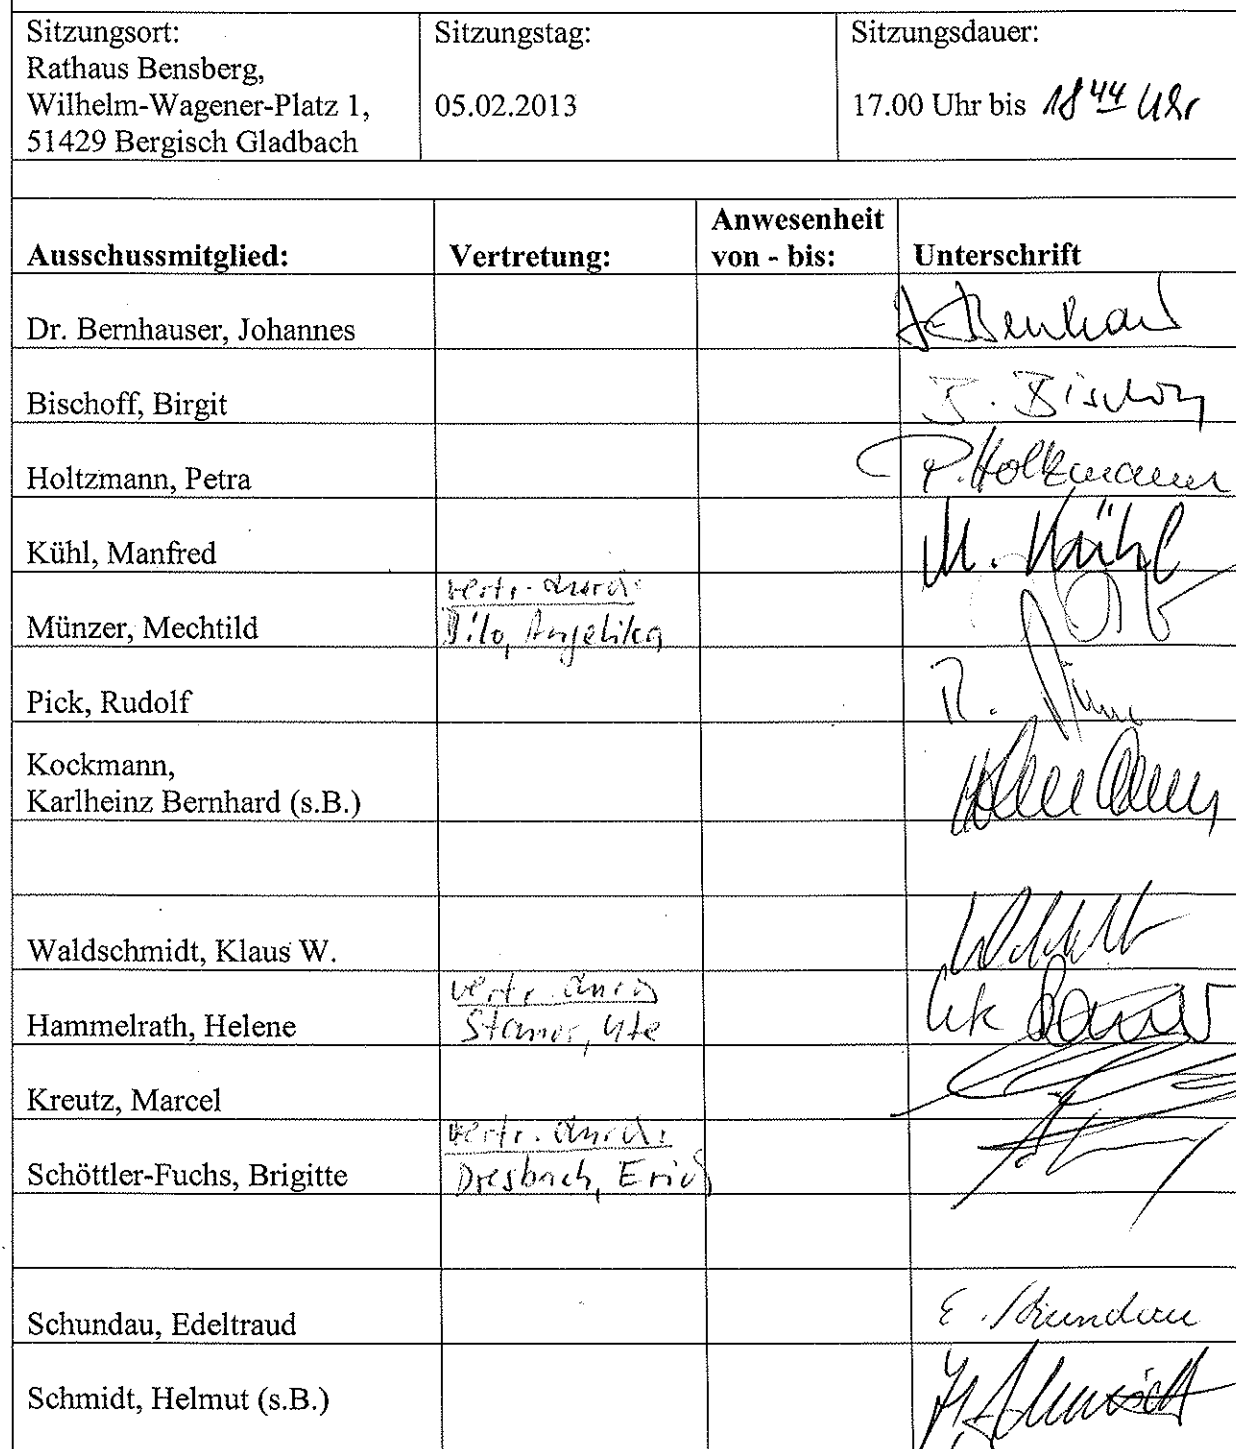 Sitzungsort:
Rathaus Bensberg,
Wilhelm-Wagener-Platz 1,
51429 Bergisch Gladbach
Sitzungstag:
05.02.2013
Sitzungsdauer:
17.00 Uhr bis 18 44 Uhr
Ausschussmitglied: Vertretung: Anwesenheit von - bis: Unterschrift
Dr. Bernhauser, Johannes
Bischoff, Birgit B. Bischoff
Holtzmann, Petra P. Holtzmann
Kühl, Manfred M. Kühl
vertr. durch:
Münzer, Mechtild Bilo, Angelika
Pick, Rudolf R.
Kockmann,
Karlheinz Bernhard (s.B.)
Waldschmidt, Klaus W.
vertr. durch
Hammelrath, Helene Stamer, Ute Ute
Kreutz, Marcel
vertr. durch:
Schöttler-Fuchs, Brigitte Dresbach, Erich
Schundau, Edeltraud E. Schundau
Schmidt, Helmut (s.B.) H. Schmidt